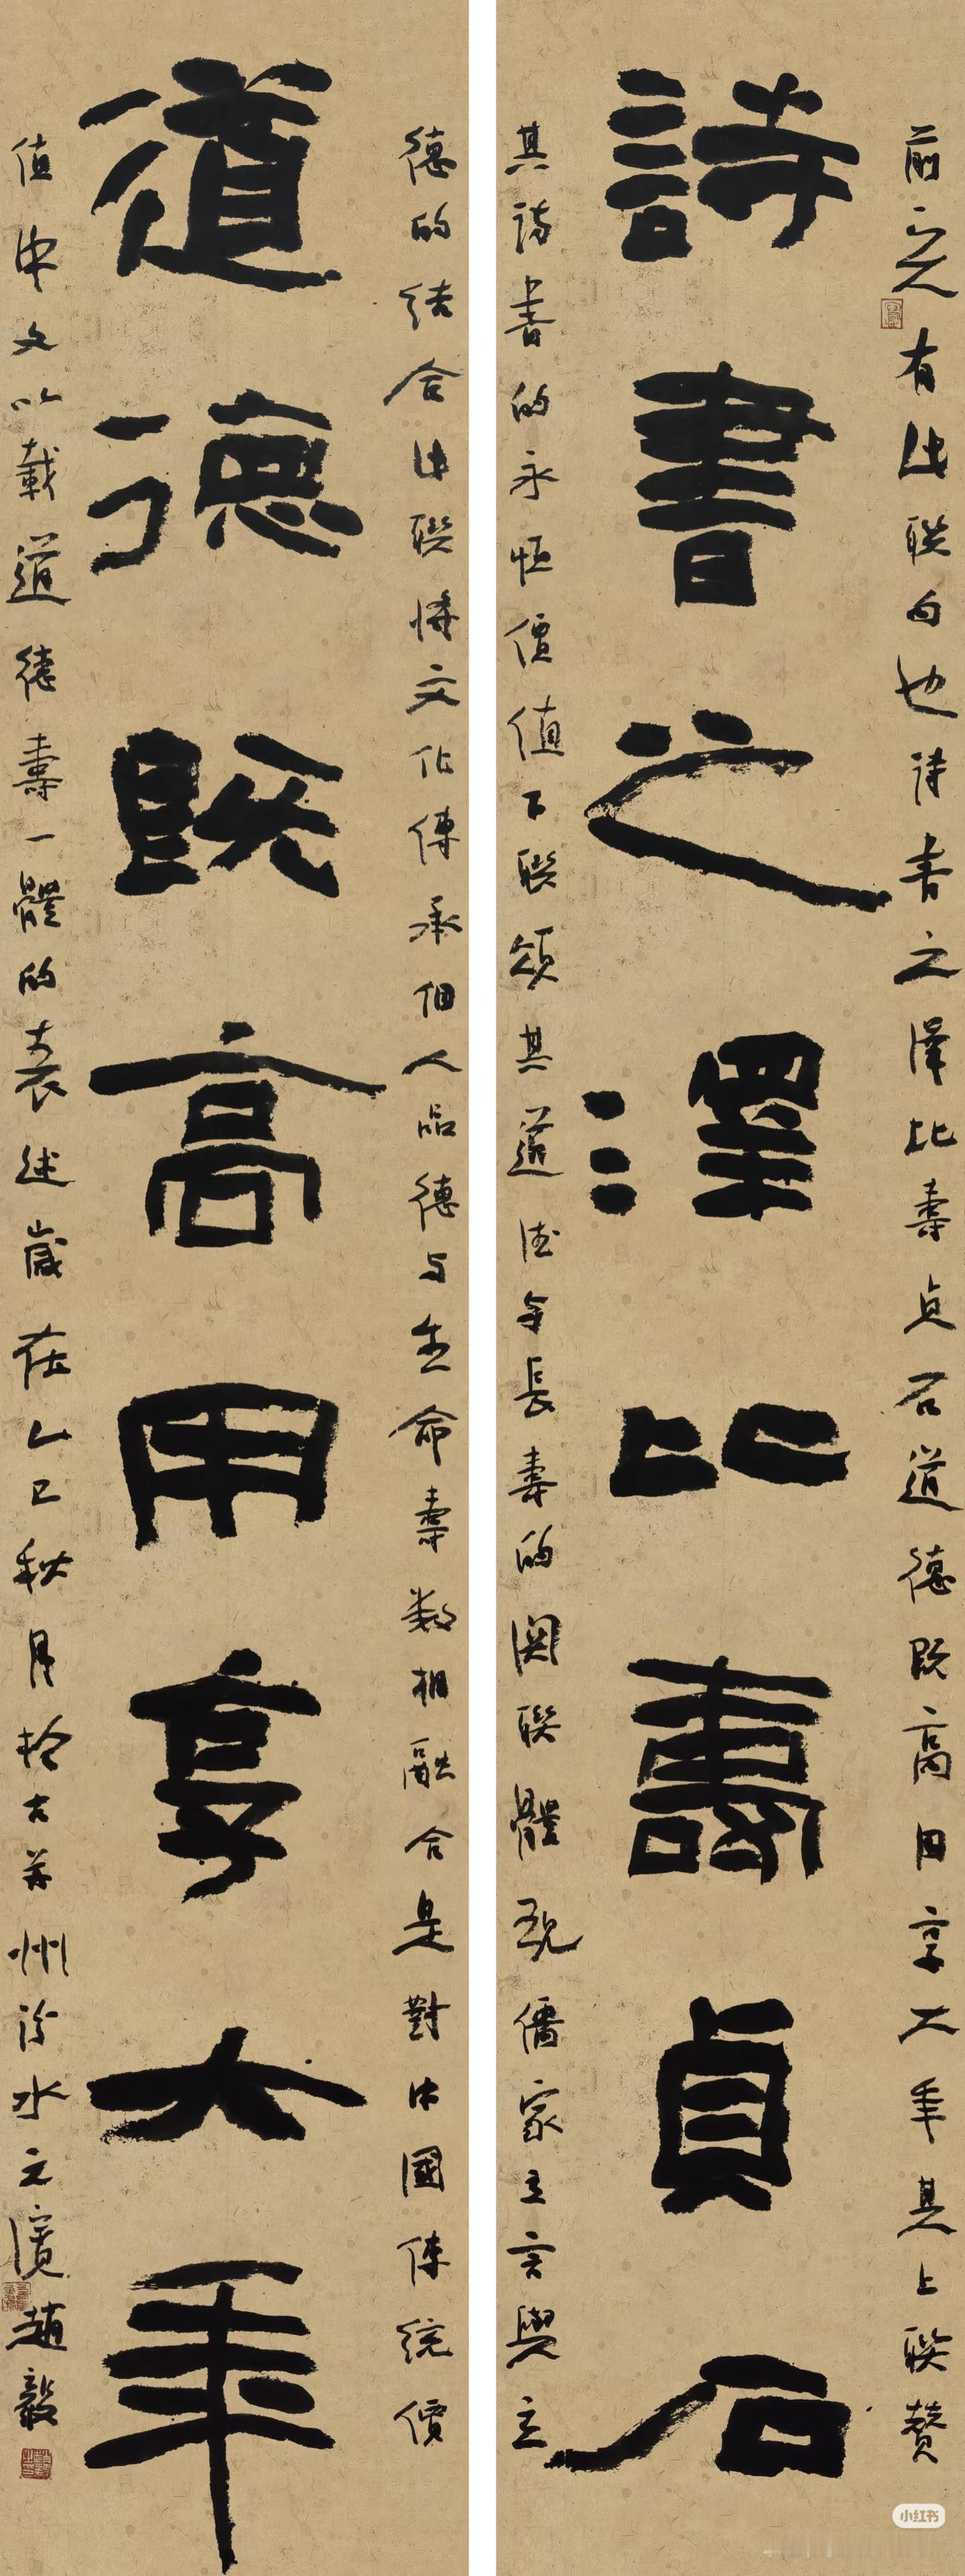 前人有此聯句也詩書之澤比壽貞石道德既高用享大年其上聯贊
詩書之澤比壽貞石
其詩書的永恒價值下聯頌其道德与長壽的関聯體現儒家立言與立
德的结合此聯将文化傳承個人品德与生命壽数相融合是對中國傳統價
道德既高用享大年
值中文以載道德壽一體的表述歲在乙巳秋月於古并州汾水之濱趙毅
小红书